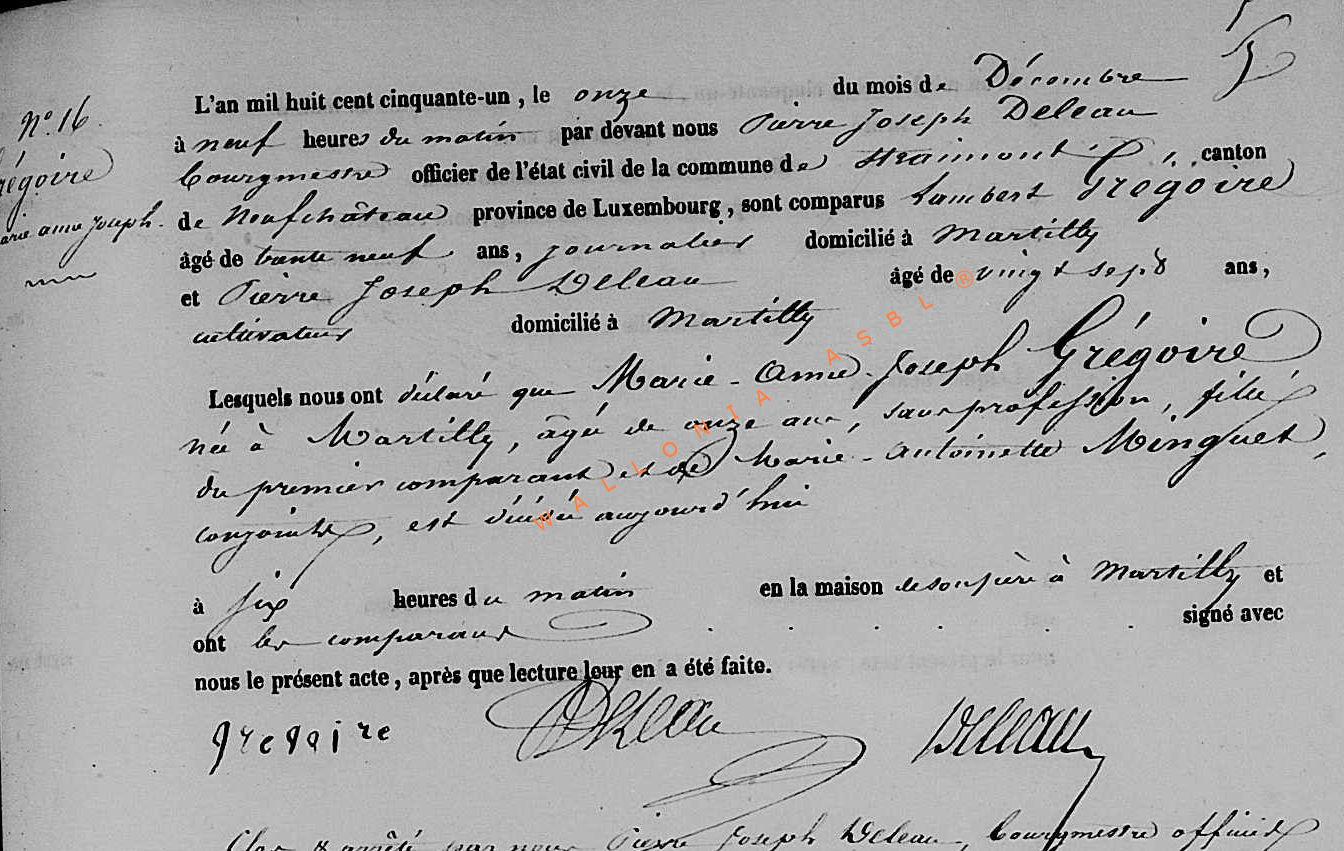 N° 16.
Grégoire
Marie anne Joseph.
L'an mil huit cent cinquante-un, le onze du mois de Décembre
à neuf heures du matin par devant nous Pierre Joseph Deleau
bourgmestre officier de l'état civil de la commune de Straimont, canton
de Neufchâteau province de Luxembourg, sont comparus Lambert Grégoire
âgé de trente neuf ans, journalier domicilié à Martilly
et Pierre Joseph Deleau âgé de vingt sept ans,
cultivateur domicilié à Martilly
Lesquels nous ont déclaré que Marie-Anne-Joseph Grégoire
née à Martilly, âgée de onze ans, sans profession, fille
du premier comparant et de Marie-Antoinette Minguet,
conjoints, est décédée aujourd'hui
à six heures du matin en la maison de son père à Martilly et
ont les comparans signé avec
nous le présent acte, après que lecture leur en a été faite.
gregoire Deleau Deleau
Clos & arrêté par nous Pierre Joseph Deleau, bourgmestre officier
WALLONIA ASBL ®